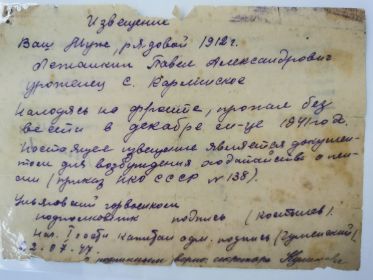 Извещение
Ваш муж, рядовой 1912г.
Лежайкин Павел Александрович
уроженец с. Карлинское
Находясь на фронте, пропал без
вести в декабре м-це 1941 года.
Настоящее извещение является докумен-
том для возбуждения ходатайства о пен-
сии (приказ НКО СССР № 138).
Ульяновский горвоенком
подполковник подпись (Костылев).
Нач. I части капитан адм. подпись
2.07.47.
с подлинным верно: секретарь